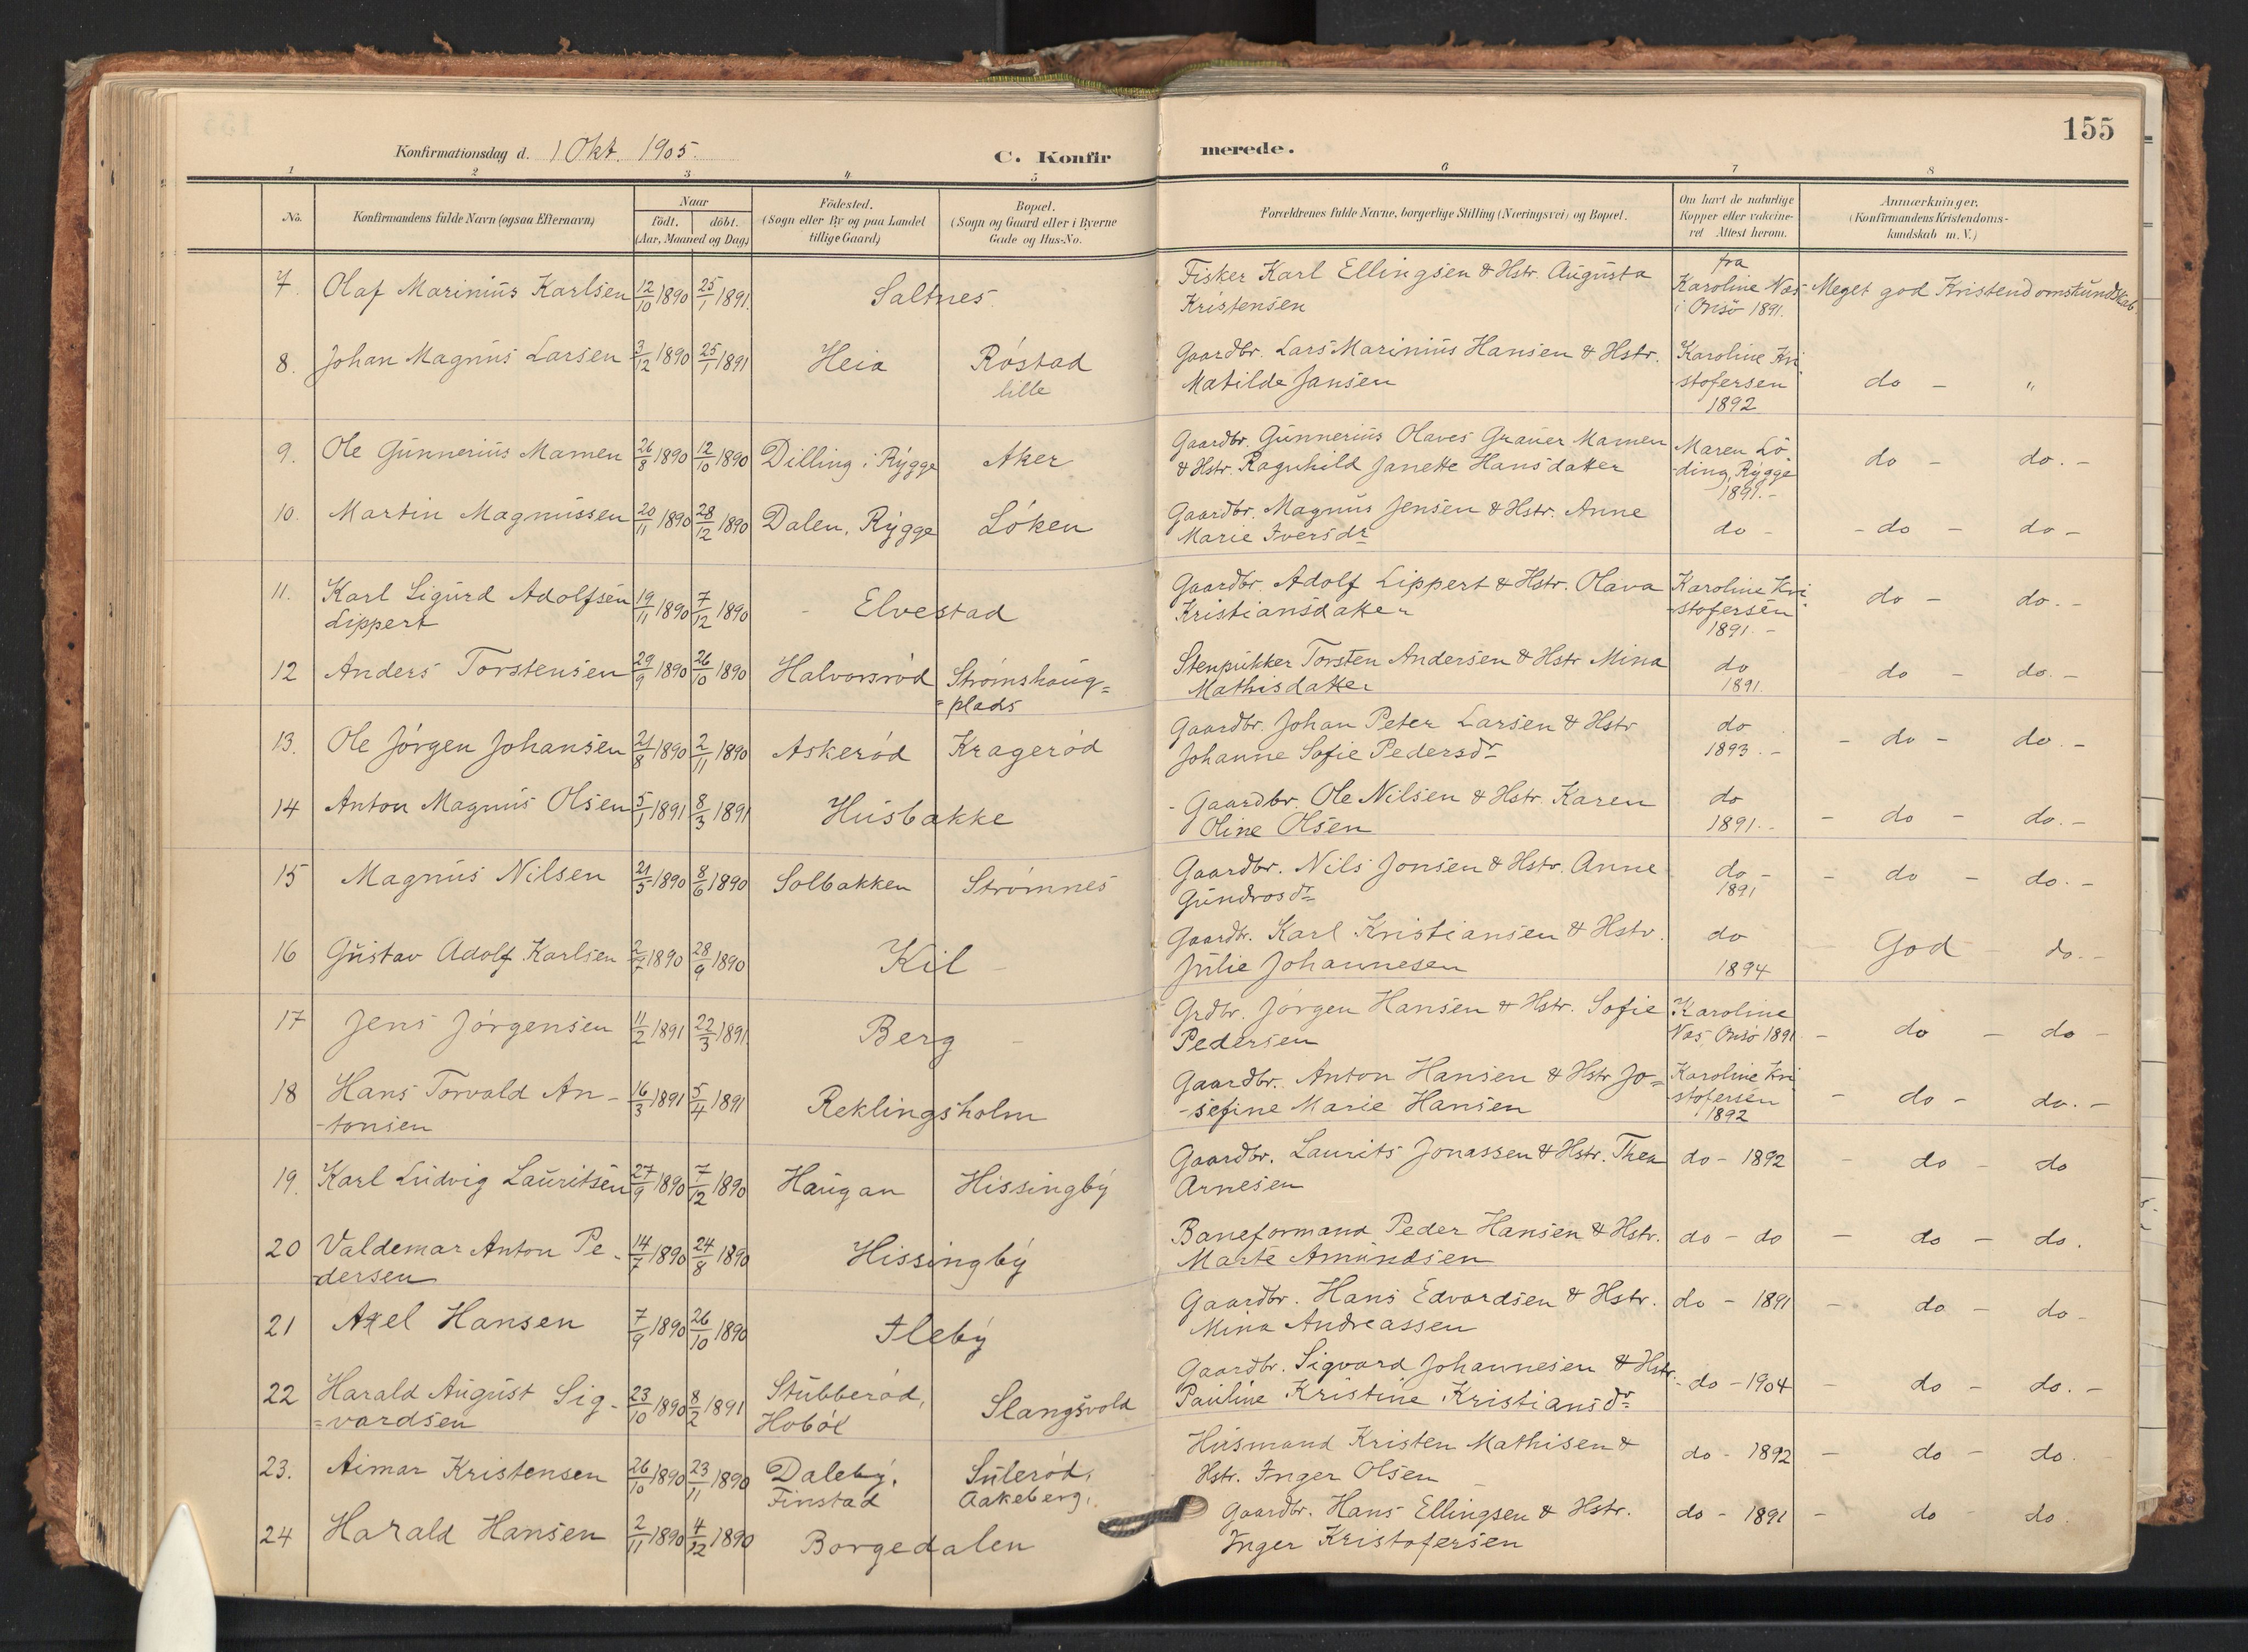 155
Konfirmationsdag d. 1 Okt. 1905.
C. Konfir
merede.
1 2 3 4 5 6 7 8
No.
Konfirmandens fulde Navn (ogsaa Efternavn)
Naar
født. døbt.
(Aar, Maaned og Dag)
Fødested.
(Sogn eller By og paa Landet
tillige Gaard)
Bopæl.
(Sogn og Gaard eller i Byerne
Gade og Hus-No.
Forældrenes fulde Navne, borgerlige Stilling (Næringsvei) og Bopæl.
Om havt de naturlige
Kopper eller vakcine-
ret Attest herom.
Anmærkninger.
(Konfirmandens Kristendoms-
kundskab m. V.)
7. Olaf Marinius Karlsen 12/10 1890 25/1 1891. Saltnes. Fisker Karl Ellingsen & Hstr. Augusta
Kristensen
fra
Karoline Næs
i Onsö 1891.
Meget god Kristendomskundskab
8. Johan Magnus Larsen 3/12 1890 25/1 1891 Heia Röstad
lille
Gaardbr. Lars Marinius Hansen & Hstr.
Matilde Jansen
Karoline Kri
stofersen
1892
do - "
9. Ole Gunnerius Mamen 26/8 1890 12/10 1890 Dilling i Rygge Aker
Gaardbr. Gunnerius Olaves Grauer Mamen
& Hstr. Ragnhild Janette Hansdatter
Maren Lö
-ding, Rygge
1891.-
do - do. -
10. Martin Magnussen 20/11 1890 28/12 1890 Dalen, Rygge Löken
Gaardbr. Magnus Jensen & Hstr. Anne
Marie Iversdr
do -
- do - do -
11. Karl Sigurd Adolfsen
Lippert
19/11 1890 7/12 1890 - Elvestad
Gaardbr. Adolf Lippert & Hstr. Olava
Kristiansdatter
Karoline Kri
-stofersen
1891.-
do - do. -
12 Anders Torstensen 29/9 1890 26/10 1890 Halvorsröd Strömshaug=
=plads
Stenpukker Torsten Andersen & Hstr Mina
Mathisdatter
do
1891.
do - do. -
13. Ole Jörgen Johansen 21/8 1890 2/11 1890 Askeröd Krageröd
Gaardbr. Johan Peter Larsen & Hstr
Johanne Sofie Pedersdr
do
1893.-
- do - do. -
14 Anton Magnus Olsen 5/1 1891 8/3 1891 Husbakke
- Gaardbr. Ole Nilsen & Hstr. Karen
Oline Olsen
do
1891.-
- do - do. -
15 Magnus Nilsen 21/5 1890 8/6 1890 Solbakken Strömnes
Gaardbr. Nils Jonsen & Hstr. Anne
Gundrosdr
do -
1891
- do - do. -
16 Gustav Adolf Karlsen 2/7 1890 28/9 1890 Kil -
Gaardbr. Karl Kristiansen & Hstr.
Julie Johannesen
do
1894
God do. -
17 Jens Jörgensen 11/2 1891 22/3 1891. Berg -
Grdbr. Jörgen Hansen & Hstr. Sofie
Pedersen
Karoline
Næs, Onsö 1891
- do - do -
18 Hans Torvald An-
-tonsen
16/3 1891 5/4 1891 Reklingsholm
Gaardbr. Anton Hansen & Hstr Jo=
-sefine Marie Hansen
Karoline Kri
stofersen
1892
- do - do. -
19. Karl Ludvig Lauritsen 27/9 1890 7/12 1890 Haugan Hissingby
Gaardbr. Laurits Jonassen & Hstr. Thea
Arnesen
do - 1892
- do - do
20 Valdemar Anton Pe-
-dersen
14/7 1890 24/8 1890 Hissingby
Baneformand Peder Hansen & Hstr.
Marte Amundsen
do - do
- do - do.
21 Axel Hansen 7/9 1890 26/10 1890 Fleby
Gaardbr. Hans Edvardsen & Hstr.
Mina Andreassen
do - 1891
- do - do -
22 Harald August Sig-
=vardsen
23/10 1890 8/2 1891 Stubberöd,
Haböl
Slangsvold
Gaardbr. Sigvard Johannesen & Hstr.
Pauline Kristine Kristiansdr
- do - 1904
- do - do. -
23. Aimar Kristensen 26/10 1890 23/11 1890 Daleby,
Finstad
Suleröd,
Aakeberg,
Husmand Kristen Mathisen &
Hstr. Inger Olsen
do - 1892
- do - do.
24 Harald Hansen 2/11 1890 4/12 1890 Borgedalen
Gaardbr. Hans Ellingsen & Hstr.
Inger Kristofersen
do - 1891
- do do.